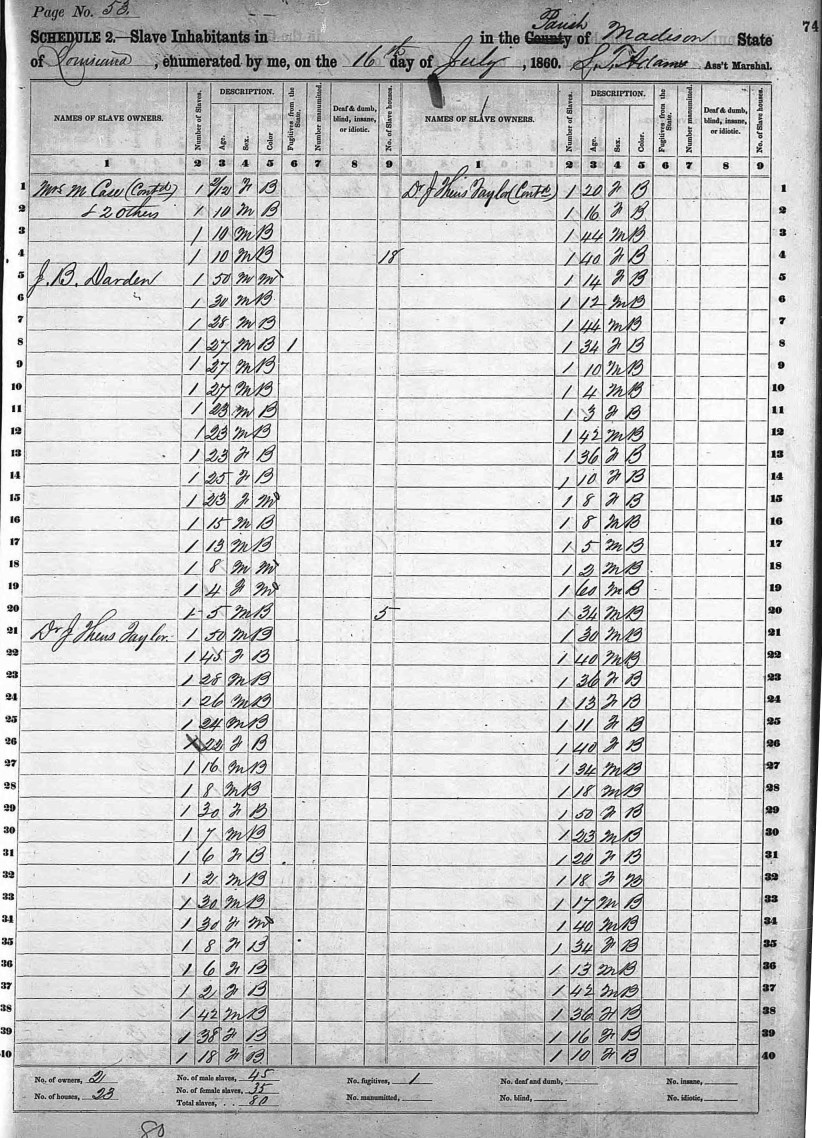 Page No. 53.
74
SCHEDULE 2.—Slave Inhabitants in in the County Parish of Madison State
of Louisiana, enumerated by me, on the 16th day of July, 1860. S. T. Adams Ass't Marshal.
NAMES OF SLAVE OWNERS. Number of Slaves. DESCRIPTION. Age. Sex. Color Fugitives from the State. Number manumitted. Deaf & dumb, blind, insane, or idiotic. No. of Slave houses. NAMES OF SLAVE OWNERS. Number of Slaves. DESCRIPTION. Age. Sex. Color. Fugitives from the State. Number manumitted. Deaf & dumb, blind, insane, or idiotic. No. of Slave houses.
1 2 3 4 5 6 7 8 9 1 2 3 4 5 6 7 8 9
1 Mrs M Case (Contd) 1 2/12 F B Dr J Theus Taylor (Contd) 1 20 F B 1
2 & 2 others 1 10 M B 1 16 F B 2
3 1 10 M B 1 44 M B 3
4 1 10 M B 18 1 40 F B 4
5 J. B. Darden 1 50 M M 1 14 F B 5
6 1 30 M B 1 12 M B 6
7 1 28 M B 1 44 M B 7
8 1 27 M B 1 1 34 F B 8
9 1 27 M B 1 10 M B 9
10 1 27 M B 1 4 M B 10
11 1 23 M B 1 3 F B 11
12 1 23 M B 1 42 M B 12
13 1 23 F B 1 36 F B 13
14 1 25 F B 1 10 F B 14
15 1 23 F M 1 8 F B 15
16 1 15 M B 1 8 M B 16
17 1 13 M B 1 5 M B 17
18 1 8 M M 1 2 M B 18
19 1 4 F M 1 60 M B 19
20 1 5 M B 5 1 34 M B 20
21 Dr J Theus Taylor 1 50 M B 1 30 M B 21
22 1 45 F B 1 40 M B 22
23 1 28 M B 1 36 F B 23
24 1 26 M B 1 13 F B 24
25 1 24 M B 1 11 F B 25
26 1 22 F B 1 40 F B 26
27 1 16 M B 1 34 M B 27
28 1 8 M B 1 18 M B 28
29 1 30 F B 1 50 F B 29
30 1 7 M B 1 23 M B 30
31 1 6 F B 1 20 F B 31
32 1 2 M B 1 18 F B 32
33 1 30 M B 1 17 M B 33
34 1 30 F M 1 40 M B 34
35 1 8 F B 1 34 F B 35
36 1 6 F B 1 13 M B 36
37 1 2 F B 1 42 M B 37
38 1 42 M B 1 36 F B 38
39 1 38 F B 1 16 F B 39
40 1 18 F B 1 10 F B 40
No. of owners, 2 No. of male slaves, 45 No. fugitives, 1 No. deaf and dumb, No. insane,
No. of houses, 23 No. of female slaves, 35 No. manumitted, No. blind, No. idiotic,
Total slaves, 80
80